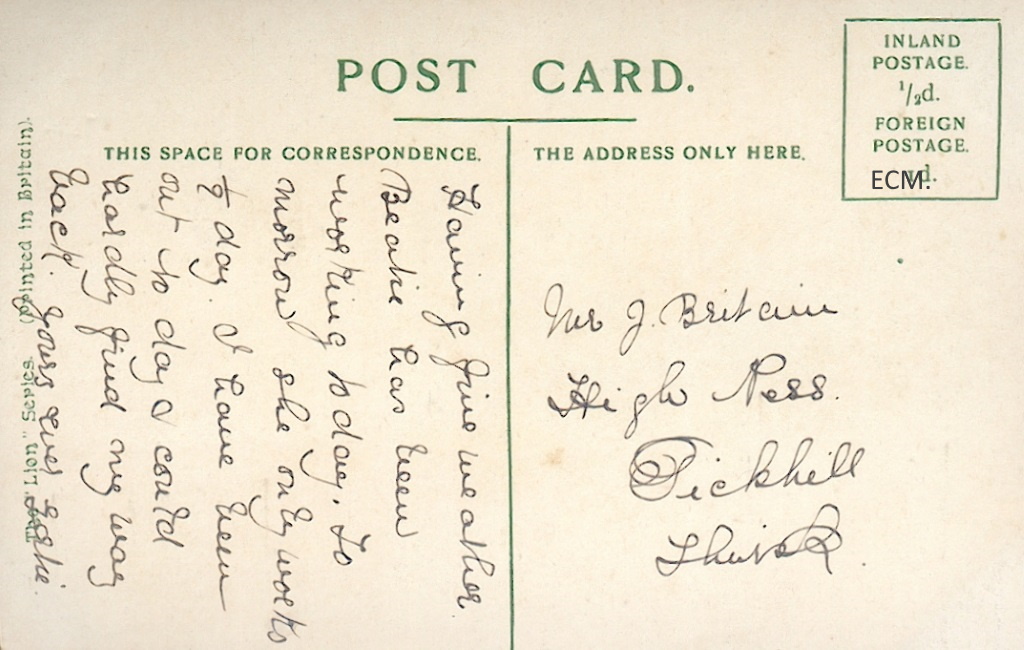 POST CARD.
INLAND
POSTAGE.
1/2d.
FOREIGN
POSTAGE.
d.
ECM.
THIS SPACE FOR CORRESPONDENCE.
THE ADDRESS ONLY HERE.
Having fine weather.
Beatie has been
working to day. To
morrow she only works
to day. I have been
out to day I could
hardly find my way
back. yours ever
The "Lion" Series. (Printed in Britain).
Mr J. Britain
High Ness.
Pickhill
Thirsk.